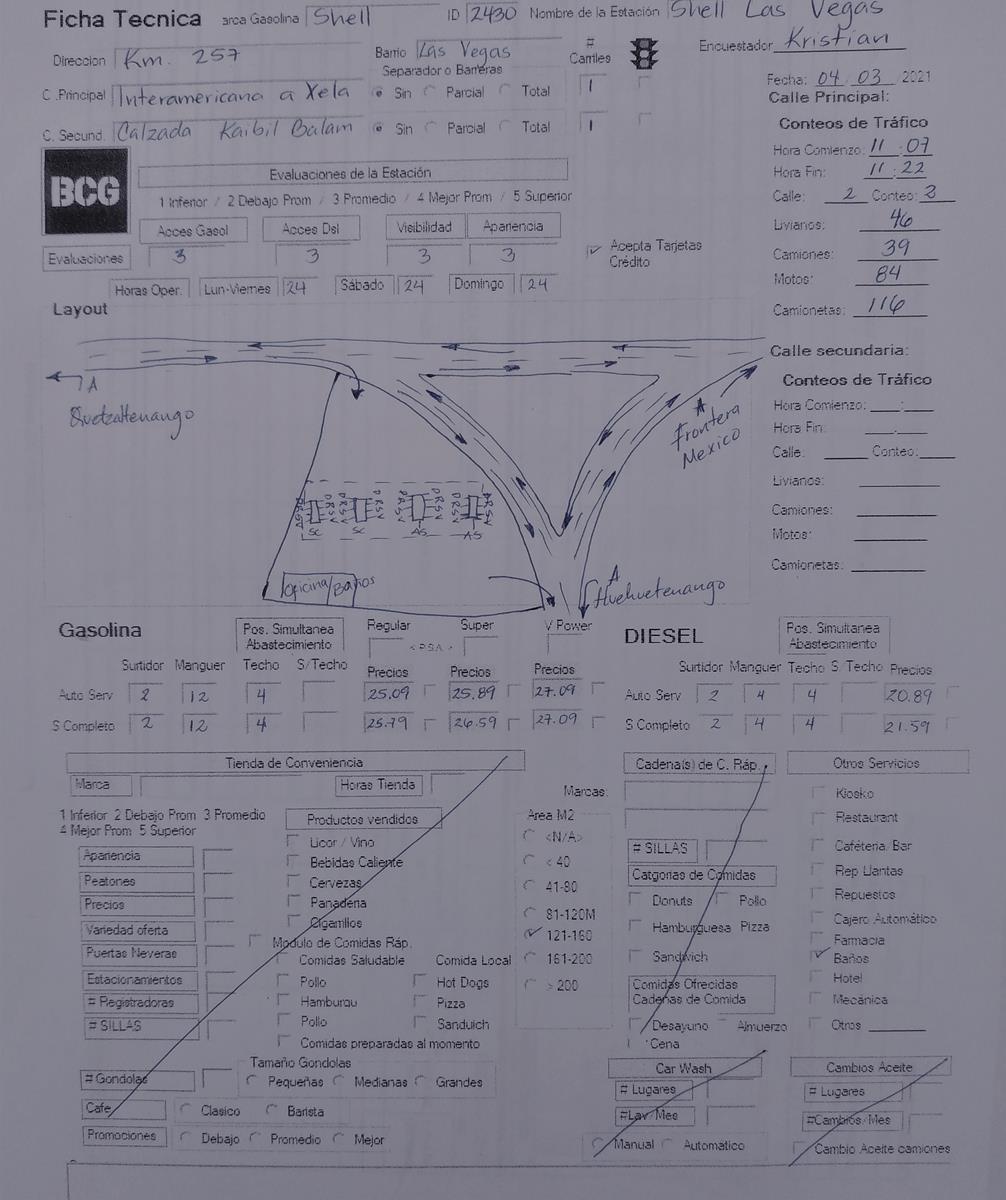 Ficha Tecnica arca Gasolina Shell ID 2430 Nombre de la Estación Shell Las Vegas
Direccion Km. 257 Barrio Las Vegas # Carriles Encuestador Kristian
Separador o Barreras
C .Principal Interamericana a Xela Sin Parcial Total 1
C. Secund. Calzada Kaibil Balam Sin Parcial Total 1
Fecha: 04 03 2021
Calle Principal:
Conteos de Tráfico
Hora Comienzo: 11 : 07
Hora Fin: 11 : 22
Calle: 2 Conteo: 3
Livianos: 46
Camiones: 39
Motos: 84
Camionetas: 116
BCG
Evaluaciones de la Estación
1 Inferior / 2 Debajo Prom / 3 Promedio / 4 Mejor Prom / 5 Superior
Acces Gasol Acces Dsl Visibilidad Apariencia
Evaluaciones 3 3 3 3
Acepta Tarjetas Crédito
Horas Oper. Lun-Viernes 24 Sábado 24 Domingo 24
Layout
A Quetzaltenango
A Frontera Mexico
D R S V D R S V D R S V D R S V
SC SC AS AS
Oficina/Baños
A Huehuetenango
Calle secundaria:
Conteos de Tráfico
Hora Comienzo: ___:___
Hora Fin: ___:___
Calle: ____ Conteo: ____
Livianos: ____
Camiones: ____
Motos: ____
Camionetas: ____
Gasolina Pos. Simultanea Abastecimiento Regular Super V Power
Surtidor Manguer Techo S/Techo Precios Precios Precios
Auto Serv 2 12 4 25.09 25.89 27.09
S Completo 2 12 4 25.79 26.59 27.09
DIESEL Pos. Simultanea Abastecimiento
Surtidor Manguer Techo S/ Techo Precios
Auto Serv 2 4 4 20.89
S Completo 2 4 4 21.59
Tienda de Conveniencia
Marca Horas Tienda
1 Inferior 2 Debajo Prom 3 Promedio
4 Mejor Prom 5 Superior
Apariencia
Peatones
Precios
Variedad oferta
Puertas Neveras
Estacionamientos
# Registradoras
# SILLAS
# Gondolas
Cafe Clasico Barista
Promociones Debajo Promedio Mejor
Productos vendidos
Licor / Vino
Bebidas Caliente
Cervezas
Panaderia
Cigarrillos
Modulo de Comidas Ráp.
Comidas Saludable Comida Local
Pollo Hot Dogs
Hamburgu Pizza
Pollo Sanduich
Comidas preparadas al momento
Tamaño Gondolas
Pequeñas Medianas Grandes
Area M2
<N/A>
< 40
41-80
81-120M
121-160
161-200
> 200
Cadena(s) de C. Ráp.
Marcas:
# SILLAS
Catgorias de Comidas
Donuts Pollo
Hamburguesa Pizza
Sandwich
Comidas Ofrecidas
Cadenas de Comida
Desayuno Almuerzo
Cena
Car Wash
# Lugares
#Lav/Mes
Manual Automatico
Otros Servicios
Kiosko
Restaurant
Cafeteria/Bar
Rep Llantas
Repuestos
Cajero Automático
Farmacia
Baños
Hotel
Mecánica
Otros ____
Cambios Aceite
# Lugares
#Cambios/Mes
Cambio Aceite camiones